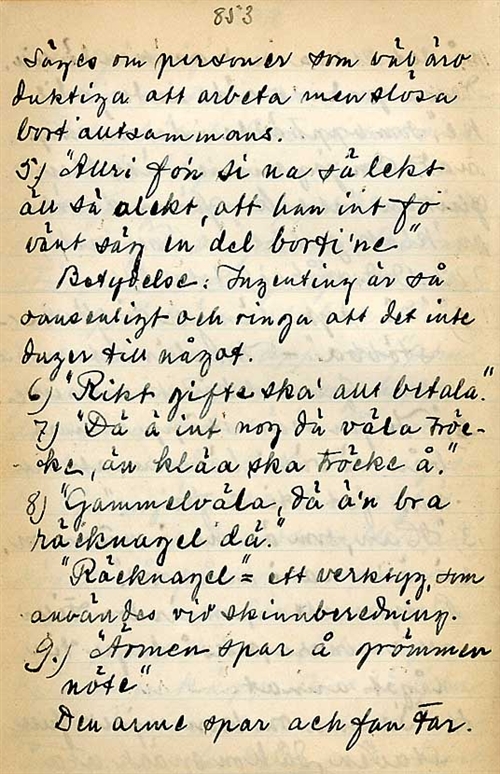 853
Säges om personer som väl äro
duktiga att arbeta men slösa
bort alltsammans.
5.) "Allri fo'n si na så lekt
äll så alekt, att han int fo
vänt säg en del borti'ne"
Betydelse: Ingenting är så
oansenligt och ringa att det inte
duger till något.
6) "Rikt gifte ska' allt betala."
7) "Dä ä int nog dä väla fröc-
ke, än klåa ska fröcke å."
8) "Gammelväla, dä ä'n bra
räcknagel dä."
"Räcknagel" = ett verktyg, som
användes vid skinnberedning.
9.) "Ärmen spar å grömmen
nöte"
Den arme spar och fan tar.